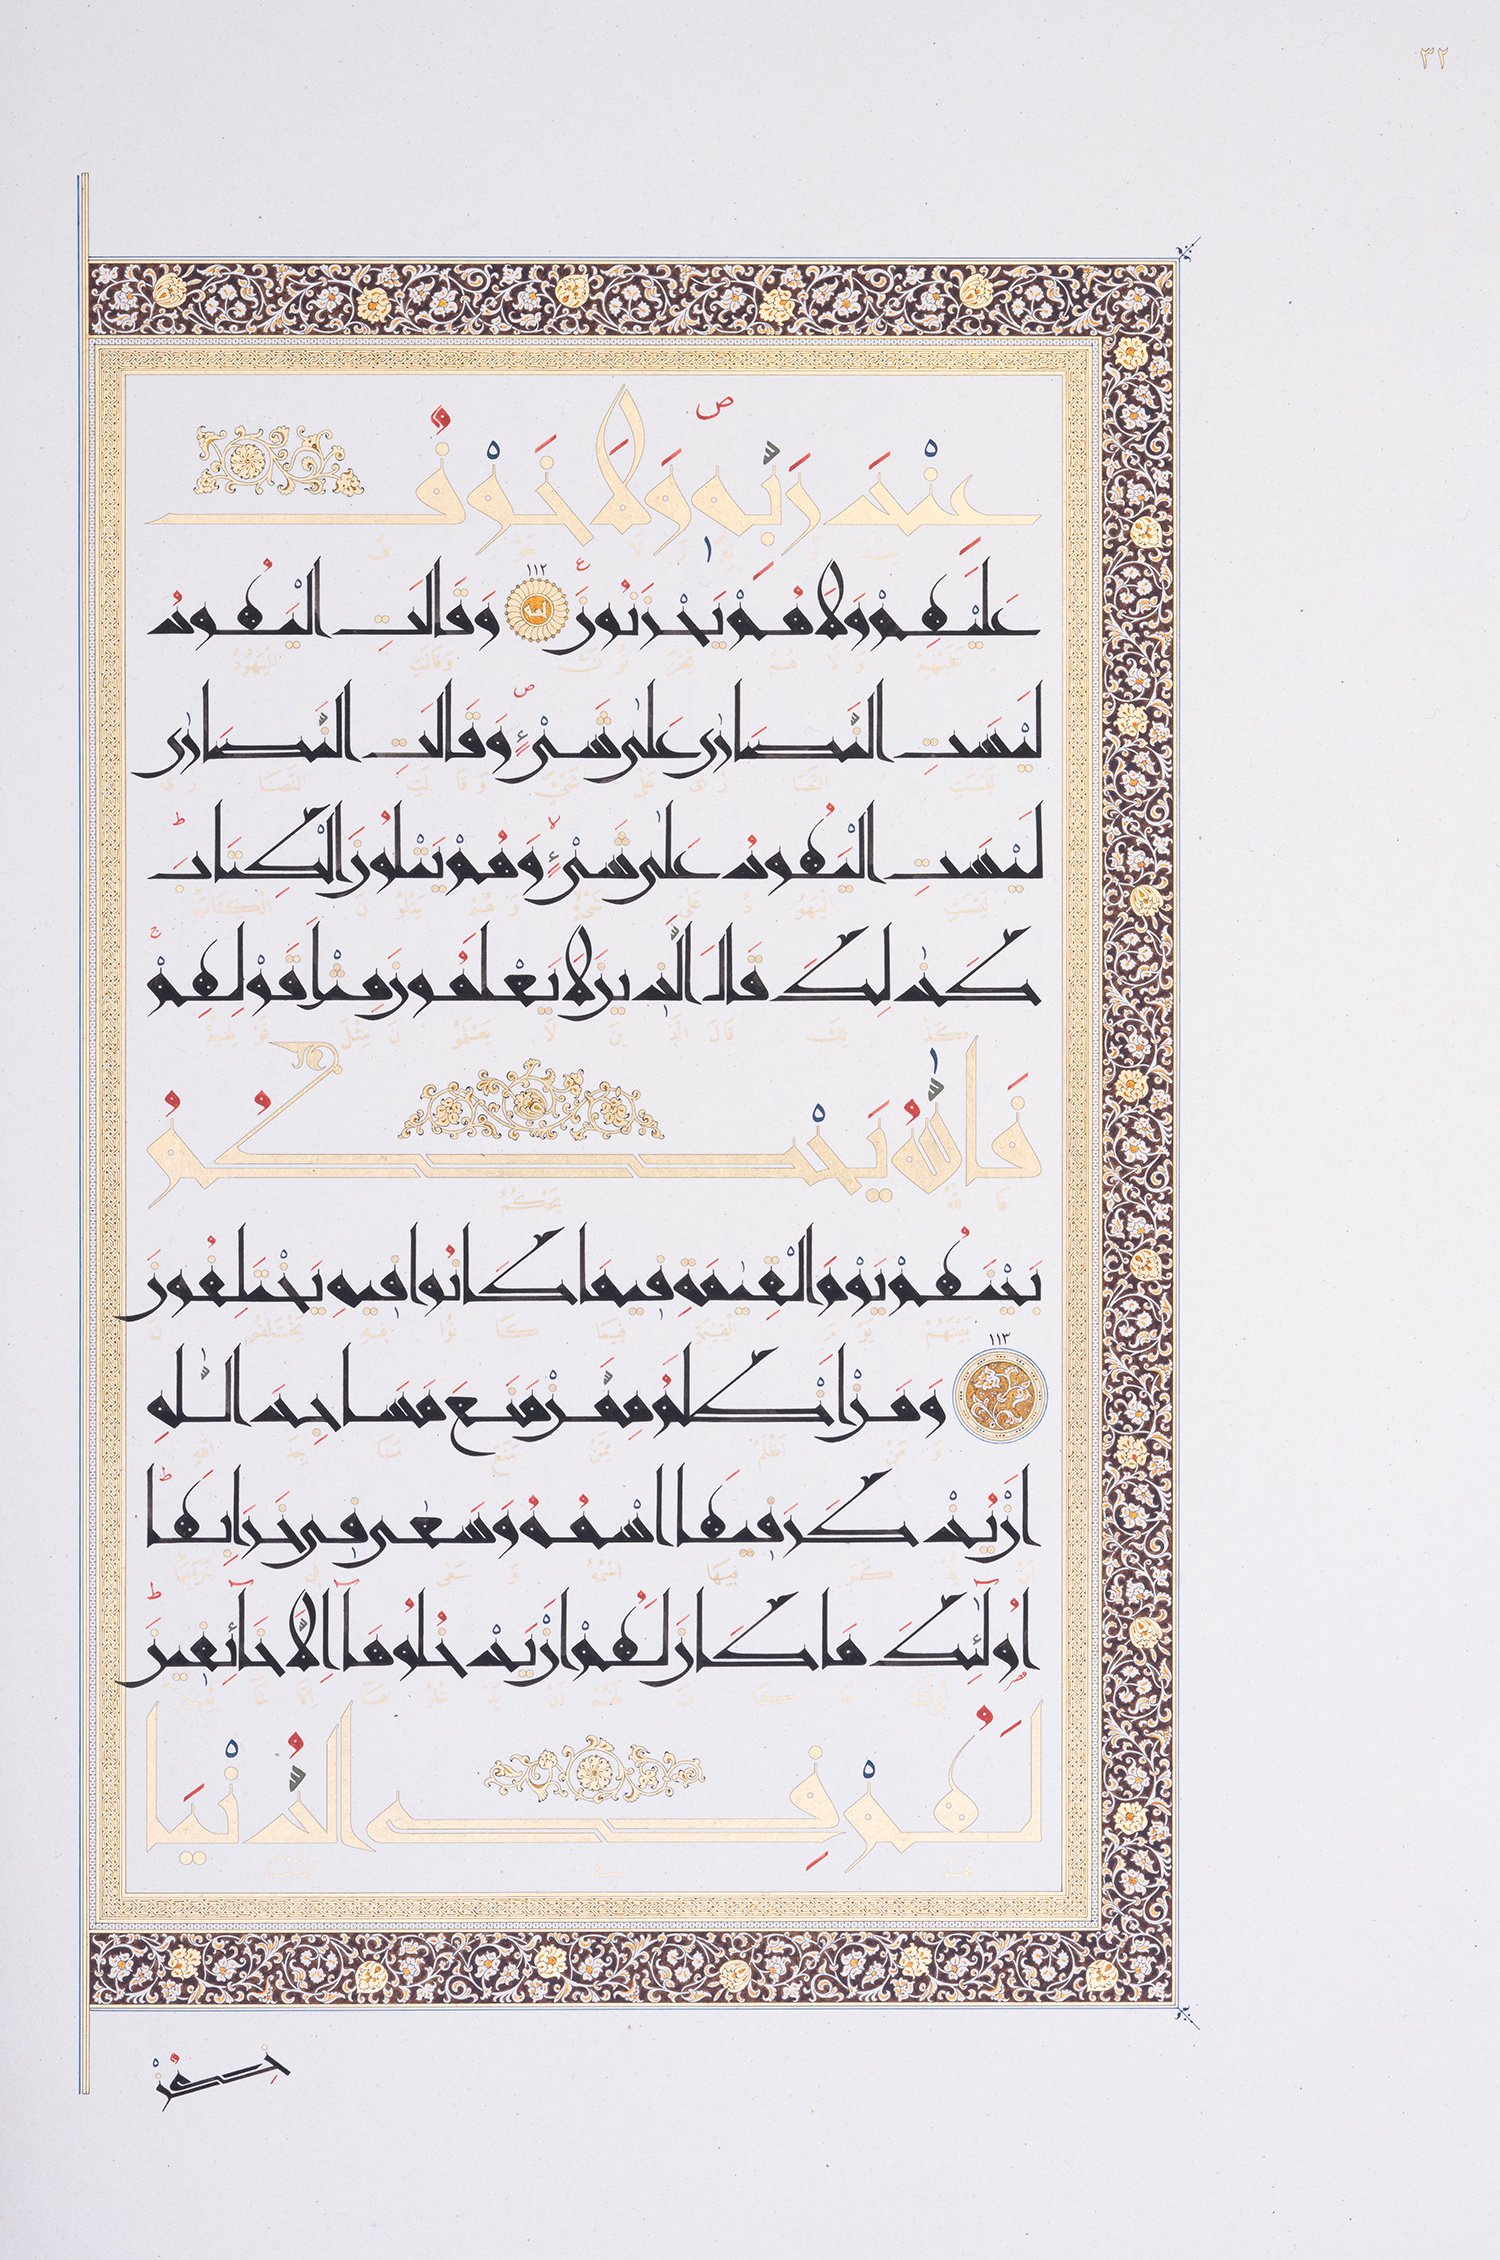 ٣٢
عِنْدَ رَبِّهِ وَلَا خَوْفٌ
عَلَيْهِمْ وَلَا هُمْ يَحْزَنُونَ ١١٢ وَقَالَتِ الْيَهُودُ
لَيْسَتِ النَّصَارٰى عَلٰى شَيْءٍ وَقَالَتِ النَّصَارٰى
لَيْسَتِ الْيَهُودُ عَلٰى شَيْءٍ وَهُمْ يَتْلُونَ الْكِتَابَ
كَذٰلِكَ قَالَ الَّذِينَ لَا يَعْلَمُونَ مِثْلَ قَوْلِهِمْ
فَاللّٰهُ يَحْكُمُ
بَيْنَهُمْ يَوْمَ الْقِيٰمَةِ فِيمَا كَانُوا فِيهِ يَخْتَلِفُونَ
١١٣ وَمَنْ أَظْلَمُ مِمَّنْ مَنَعَ مَسَاجِدَ اللّٰهِ
اَنْ يُذْكَرَ فِيهَا اسْمُهُ وَسَعٰى فِي خَرَابِهَا
اُولٰٓئِكَ مَا كَانَ لَهُمْ اَنْ يَدْخُلُوهَآ اِلَّا خَآئِفِينَ
لَهُمْ فِي الدُّنْيَا
خِزْيٌ